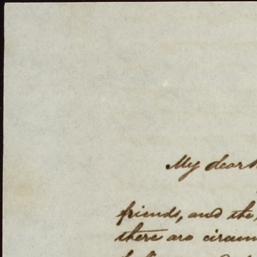 My dear
friends, and the
there are